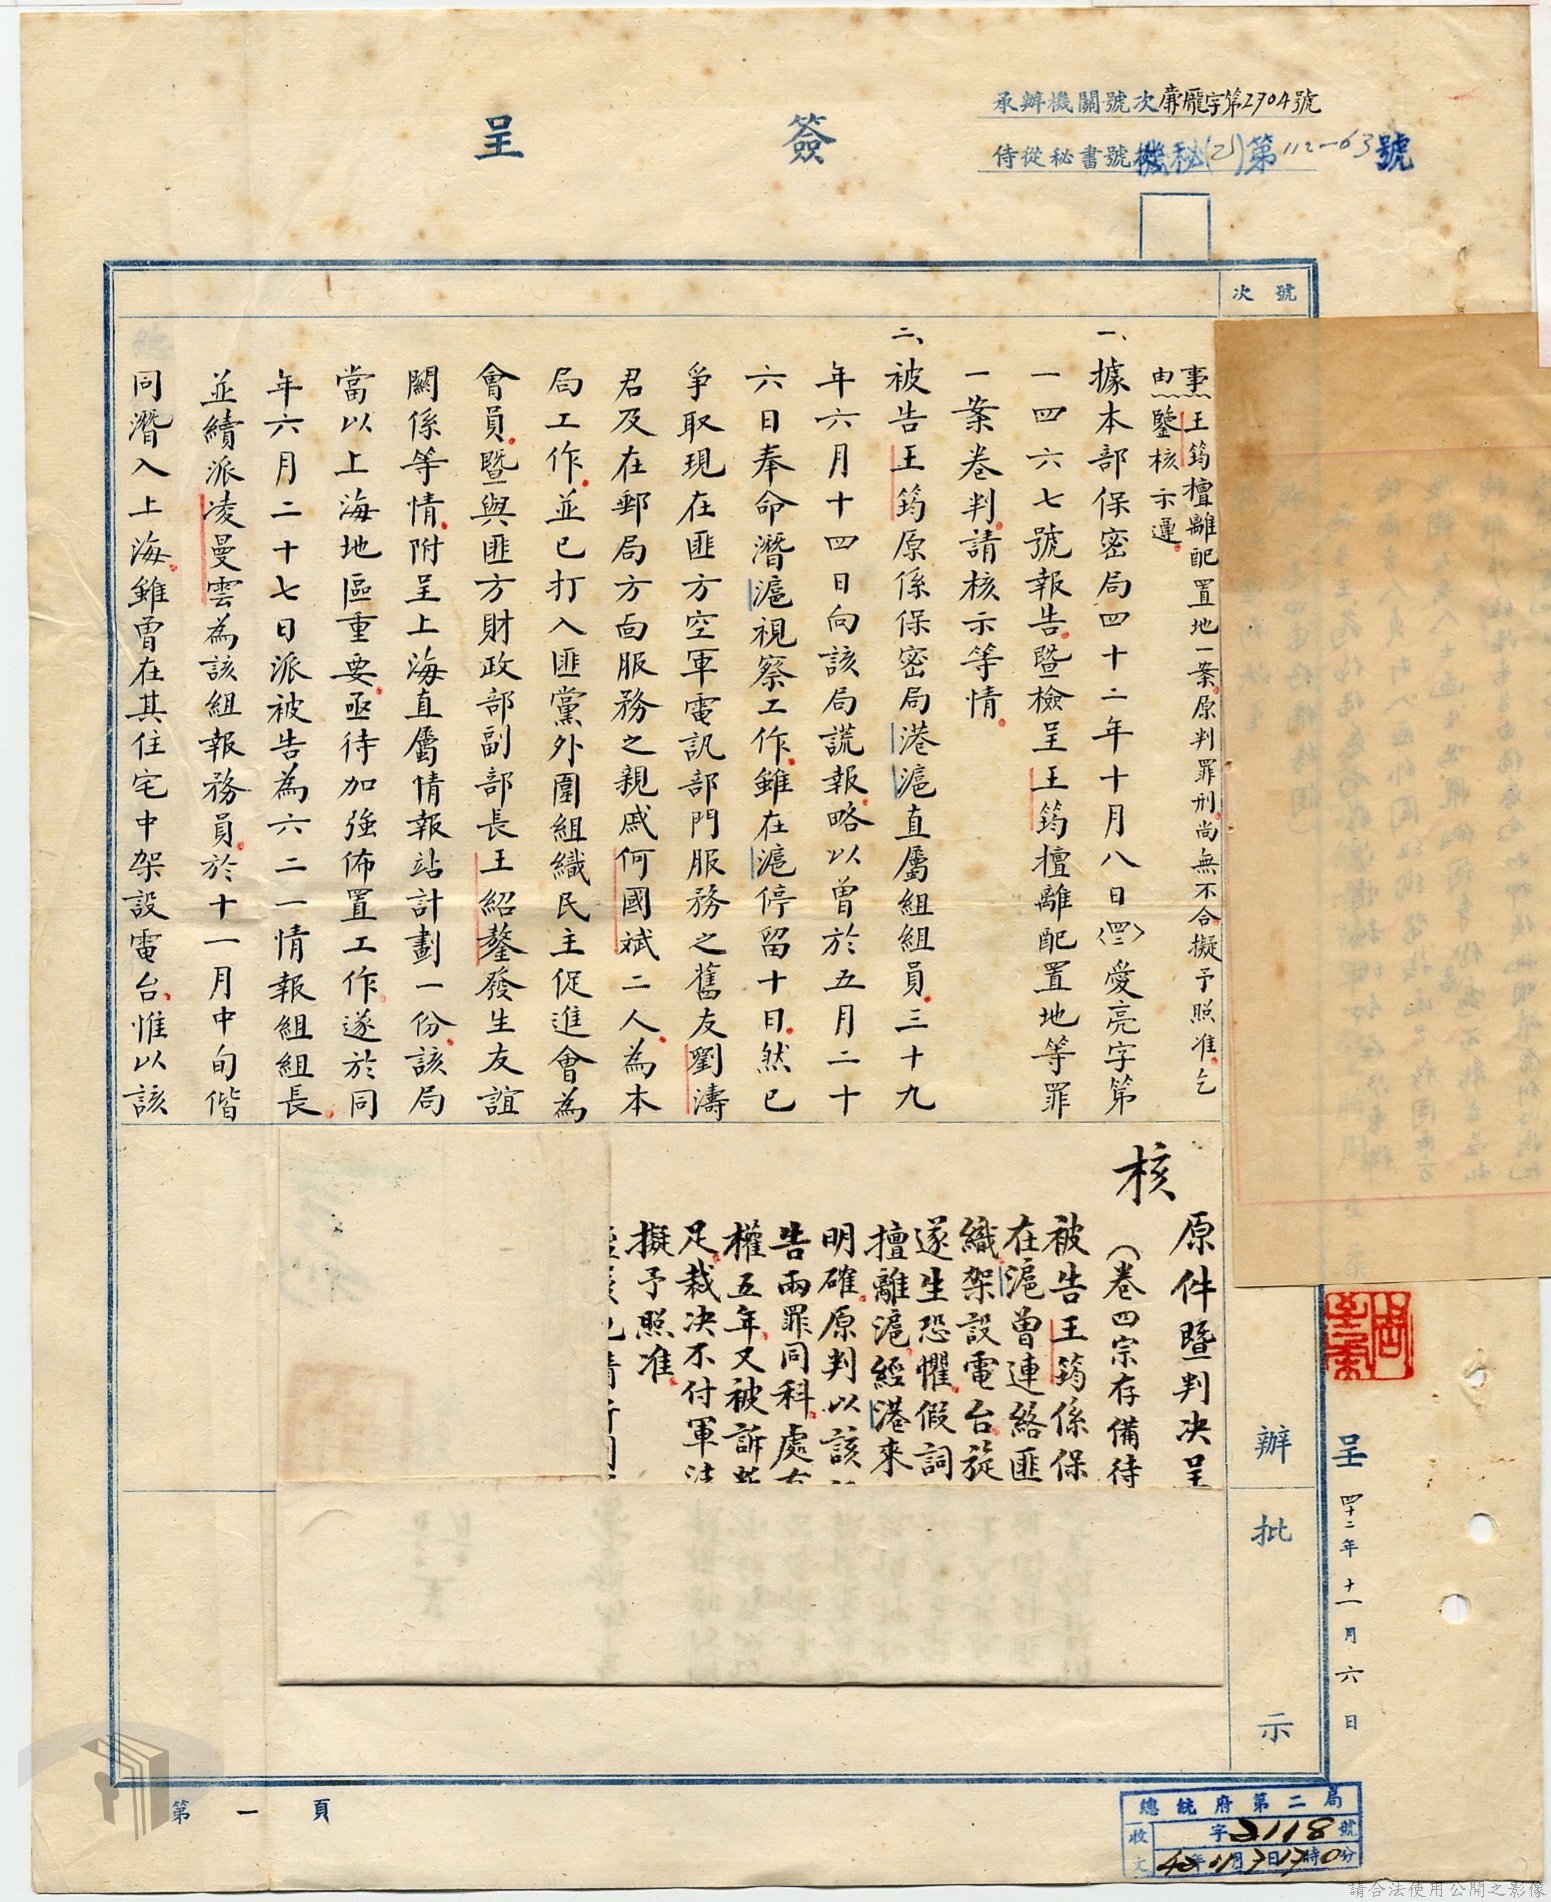 簽呈
承辦機關號次廉龎字第2704號
侍從秘書號機秘(乙)第112-63號
號次
事由
王筠擅離配置地一案原判罪刑尚無不合擬予照准乞
鑒核示遵
一、據本部保密局四十二年十月八日(四二)愛亮字第
一四六七號報告暨檢呈王筠擅離配置地等罪
一案卷判請核示等情
二、被告王筠原係保密局港滬直屬組組員三十九
年六月十四日向該局謊報略以曾於五月二十
六日奉命潛滬視察工作雖在滬停留十日然已
爭取現在匪方空軍電訊部門服務之舊友劉濤
君及在郵局方面服務之親戚何國斌二人為本
局工作並已打入匪黨外圍組織民主促進會為
會員暨與匪方財政部副部長王紹鏊發生友誼
關係等情附呈上海直屬情報站計劃一份該局
當以上海地區重要亟待加強佈置工作遂於同
年六月二十七日派被告為六二一情報組組長
並續派凌曼雲為該組報務員於十一月中旬偕
同潛入上海雖曾在其住宅中架設電台惟以該
核
原件暨判決呈
(卷四宗存備待
被告王筠係保
在滬曾連絡匪
織架設電台旋
遂生恐懼假詞
擅離滬經港來
明確原判以該
告兩罪同科處
權五年又被訴
足裁決不付軍法
擬予照准
辦
批
示
呈 四十二年十一月六日
第一頁
總統府第二局
收文 字2118號
42年11月7日17時0分
請合法使用公開之影像